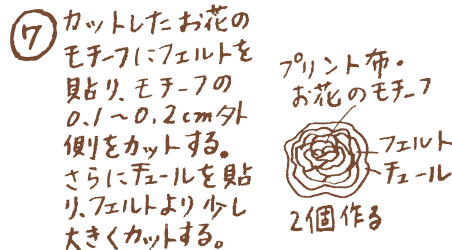 ⑦
カットしたお花の
モチーフにフェルトを
貼り、モチーフの
0.1〜0.2cm外
側をカットする。
さらにチュールを貼
り、フェルトより少し
大きくカットする。
プリント布・
お花のモチーフ
フェルト
チュール
2個作る